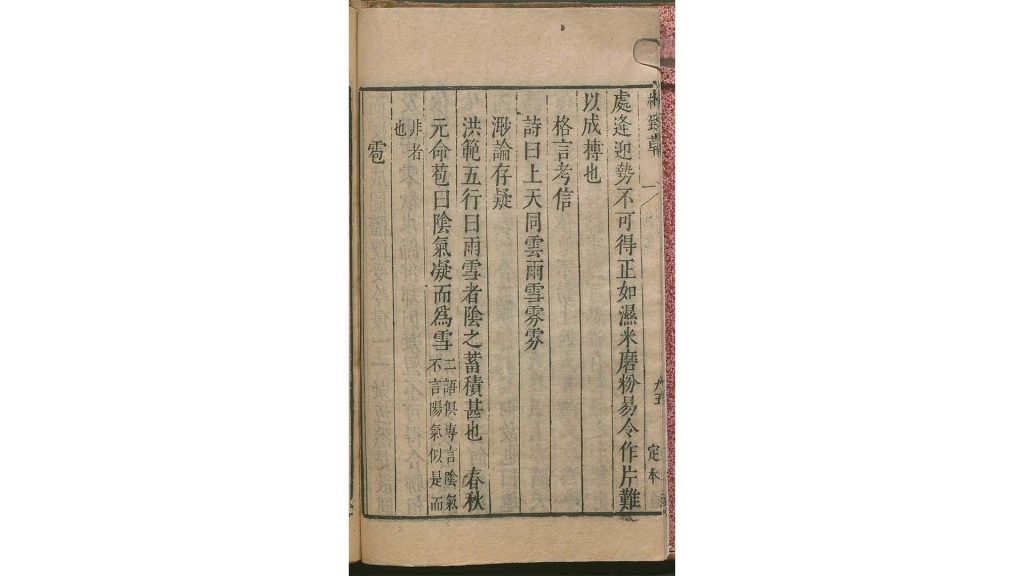 格致草
一
九五
定本
處逢迎勢不可得正如濕米磨粉易令作片難
以成摶也
格言考信
詩曰上天同雲雨雪雰雰
渺論存疑
洪範五行曰雨雪者陰之蓄積甚也 春秋
元命苞曰陰氣凝而為雪二語俱專言陰氣
不言陽氣似是而
非者
也
雹